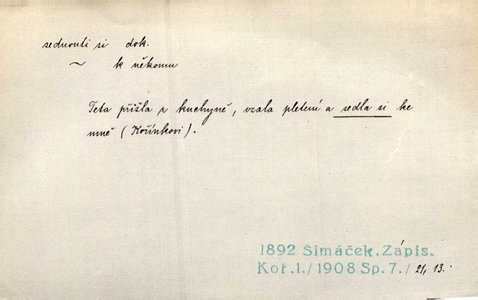 sednouti si dok.
~ k někomu
Teta přišla z kuchyně, vzala pletení a sedla si ke
mně (Kořínkovi).
1892 Šimáček. Zápis.
Koř. 1./1908 Sp. 7./ 21, 13.